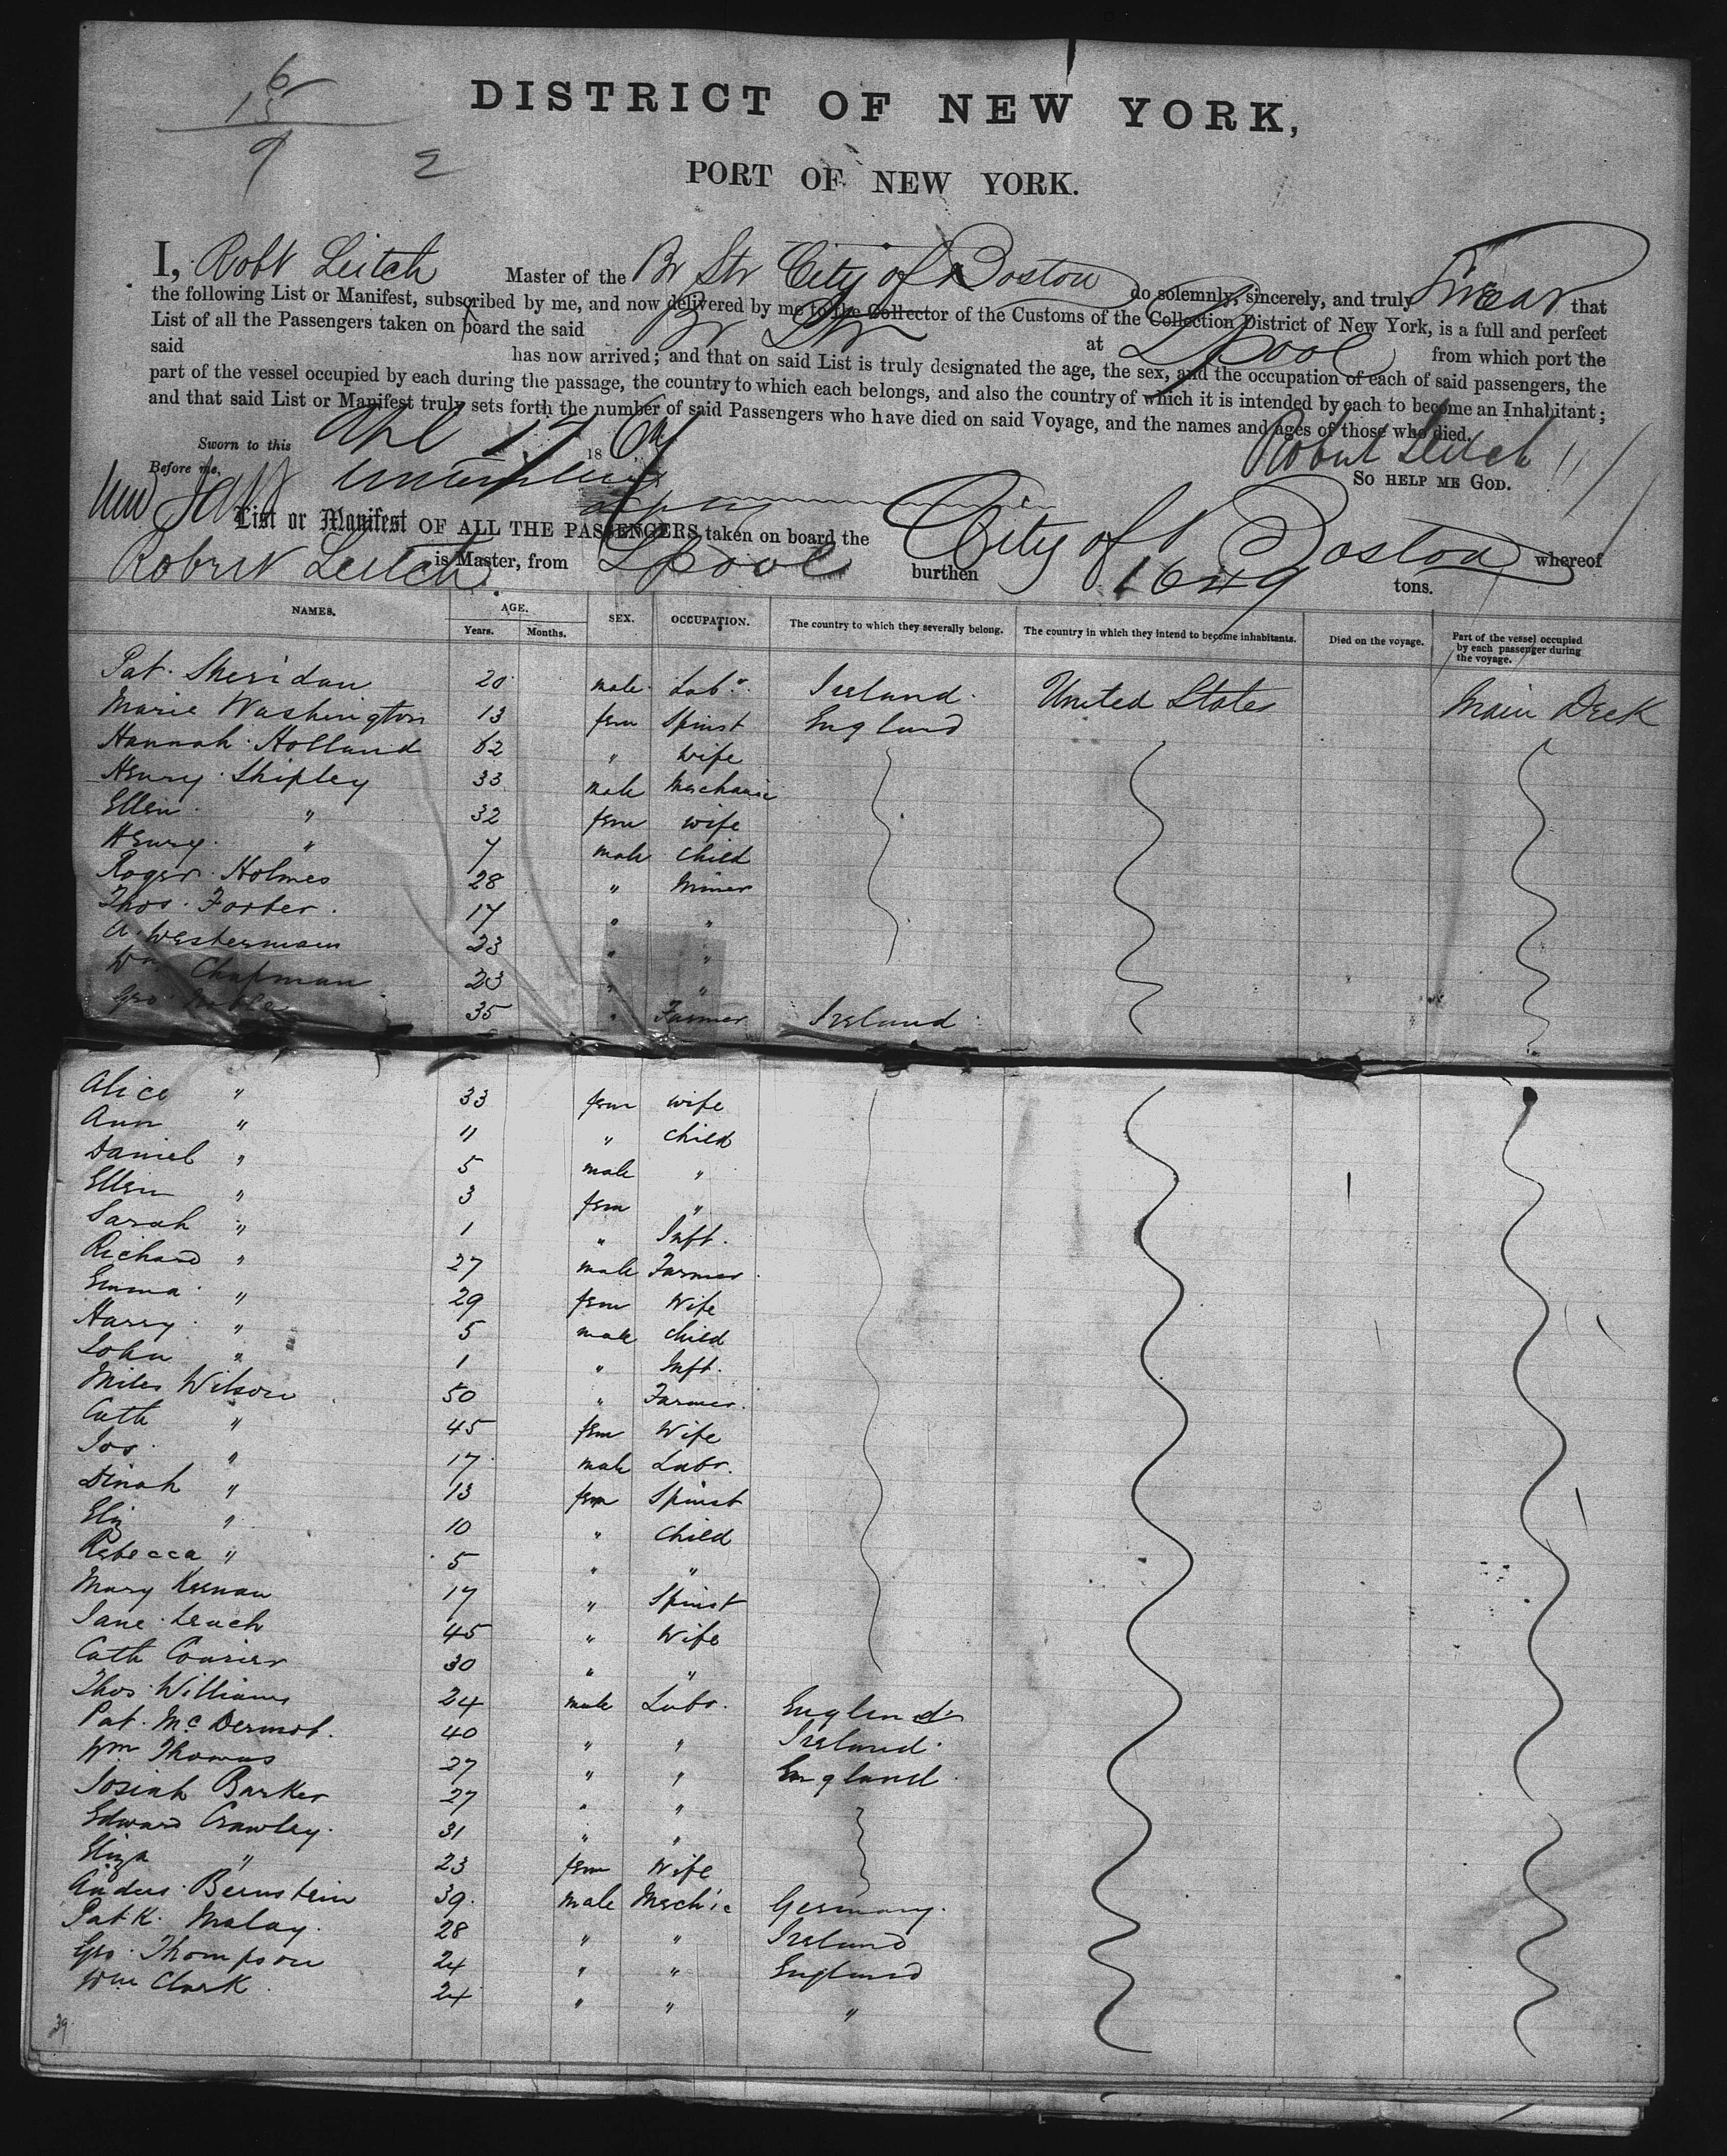 6
15
9 2
DISTRICT OF NEW YORK,
PORT OF NEW YORK.
I, Robt Leitch Master of the Br Str City of Boston do solemnly, sincerely, and truly Swear that
the following List or Manifest, subscribed by me, and now delivered by me to the Collector of the Customs of the Collection District of New York, is a full and perfect
List of all the Passengers taken on board the said Br Str at Lpool from which port the
said has now arrived; and that on said List is truly designated the age, the sex, and the occupation of each of said passengers, the
part of the vessel occupied by each during the passage, the country to which each belongs, and also the country of which it is intended by each to become an Inhabitant;
and that said List or Manifest truly sets forth the number of said Passengers who have died on said Voyage, and the names and ages of those who died.
Sworn to this Apl 17 1869 Robert Leitch
Before me, So HELP ME GOD.
List or Manifest OF ALL THE PASSENGERS taken on board the City of Boston whereof
Robert Leitch is Master, from Lpool burthen 1649 tons.
NAMES. AGE. SEX. OCCUPATION. The country to which they severally belong. The country in which they intend to become inhabitants. Died on the voyage. Part of the vessel occupied by each passenger during the voyage.
Years. Months.
Pat. Sheridan 20 male Labr. Ireland United States Main Deck
Marie Washington 13 fem Spinst England
Hannah Holland 62 " Wife
Henry Shipley 33 male Mechanic
Ellen " 32 fem wife
Henry " 7 male child
Roger Holmes 28 " Miner
Thos. Forber. 17 " "
A. Westermain 23 " "
Wm Chapman 23 " "
Geo. 35 " Farmer Ireland
Alice " 33 fem wife
Ann " 11 " child
Daniel " 5 male "
Ellen " 3 fem "
Sarah " 1 " Inft.
Richard " 27 male Farmer
Emma " 29 fem Wife
Harry " 5 male child
John " 1 " Inft.
Miles Wilson 50 " Farmer.
Cath " 45 fem Wife
Jos. " 17 male Labr.
Dinah " 13 fem Spinst
Eliz " 10 " Child
Rebecca " 5 " "
Mary Keenan 17 " Spinst
Jane Leach 45 " Wife
Cath Courier 30 " "
Thos. Williams 24 male Labr. England
Pat. McDermot. 40 " " Ireland
Wm Thomas 27 " " England
Josiah Barker 27 " "
Edward Crawley 31 " "
Eliza " 23 fem Wife
Anders Bernstein 39 male Mech'ic Germany.
Patk. Malay. 28 " " Ireland
Geo. Thompson 24 " " England
Wm Clark 24 " " "
39